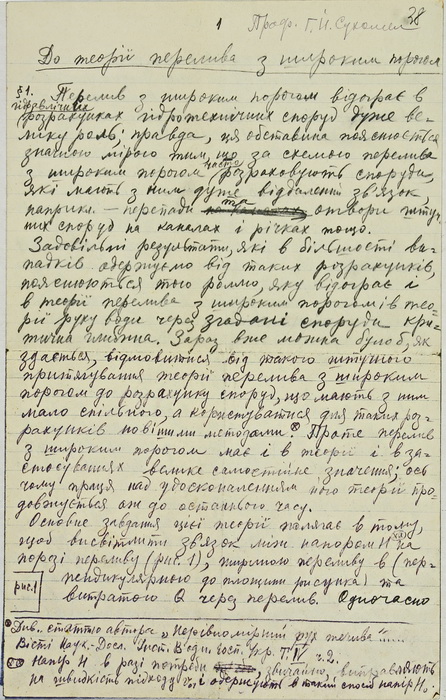 1
38
Проф. Г. Й. Сухомел
До теорії перелива з широким порогом
§1. Перелив з широким порогом відограє в
гідравлічних
розрахунках гідротехнічних споруд дуже ве-
лику роль; правда, ця обставина пояснюється
значною мірою тим, що за схемою перелива
часто
з широким порогом розраховують споруди,
які мають з ним дуже віддалений зв'язок,
наприк. — перепади та отвори штуч-
них споруд на каналах і річках тощо.
Задовільні результати, які в більшості ви-
падків одержуємо від таких розрахунків,
пояснюються тою ролею, яку відограє і
в теорії перелива з широким порогом і в тео-
рії руху води через згадані споруди кри-
тична глибина. Зараз вже можна було б, як
здається, відмовитися від такого штучного
притягування теорії перелива з широким
порогом до розрахунку споруд, що мають з ним
мало спільного, а користуватися для таких роз-
рахунків новішими методами.ˣ Проте перелив
з широким порогом має і в теорії і в за-
стосуваннях велике самостійне значення; ось
чому праця над удосконаленням його теорії про-
довжується аж до останнього часу.
Основне завдання цієї теорії полягає в тому,
щоб висвітлити зв'язок між напором H ˣˣ⁾ на
порозі переливу (рис. 1), шириною переливу b (пер-
пендикулярною до площини рисунка) та
рис. 1
витратою Q через перелив. Одночасно
ˣ Див. статтю автора „Нерівномірний рух течива"......
Вісті Наук.-Досл. Інст. Водн. Госп. Укр. Т. IV ч. 2.
ˣˣ Напір H в разі потреби, звичайно, виправляють
на швидкість підходу v₀ і одержують в такий спосіб напір H₀.